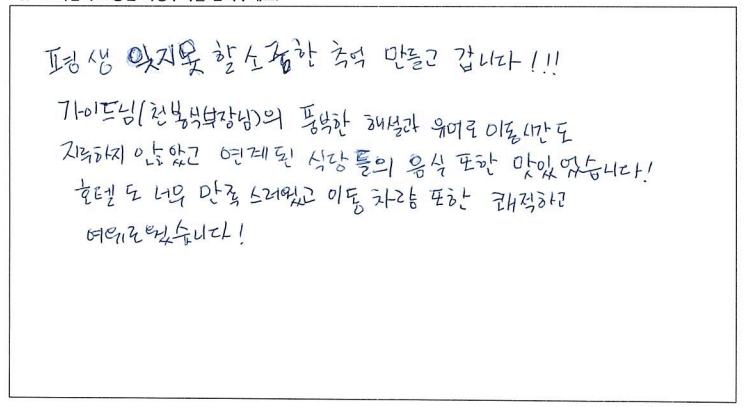 평생 잊지못 할 소중한 추억 만들고 갑니다!!!
가이드님(천봉식부장님)의 풍부한 해설과 유머로 이동시간도
지루하지 않았고 연계된 식당들의 음식 또한 맛있었습니다!
호텔도 너무 만족스러웠고 이동 차량 또한 쾌적하고
여유로웠습니다!